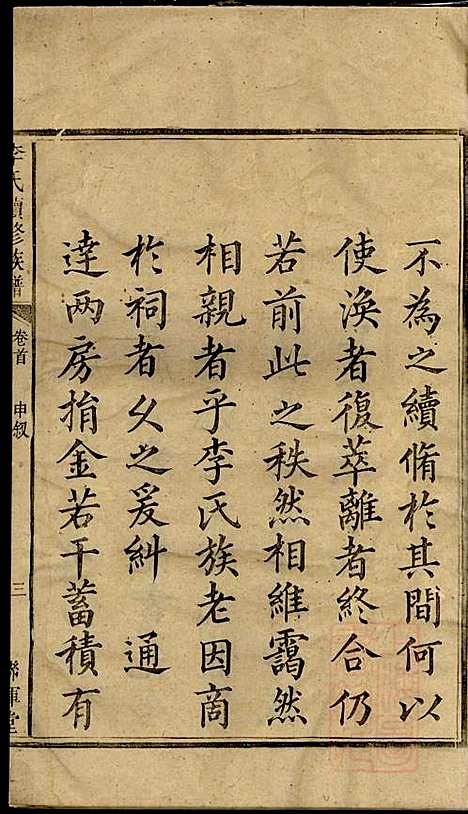 不為之續脩於其間何以
使渙者復萃離者終合仍
若前此之秩然相維靄然
相親者乎李氏族老因商
於祠者久之爰糾　通
達两房捐金若干蓄積有
李氏續修族譜　卷首　申叙　三　聯軍堂